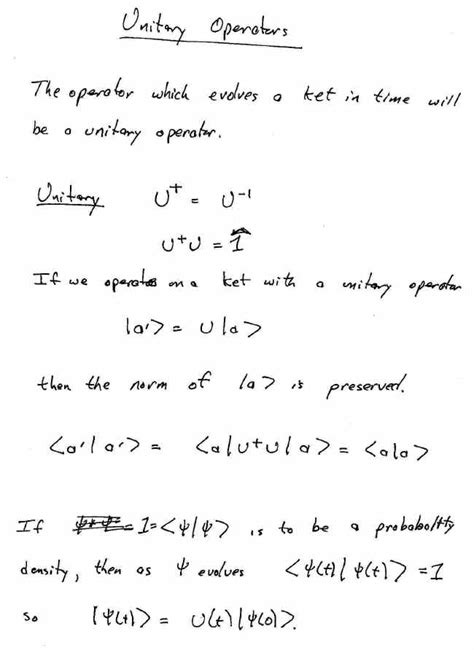 Unitary Operators
The operator which evolves a ket in time will
be a unitary operator.
Unitary U† = U⁻¹
U†U = 1̂
If we operates on a ket with a unitary operator
|a'> = U|a>
then the norm of |a> is preserved.
<a'|a'> = <a|U†U|a> = <a|a>
If 1=<ψ|ψ> is to be a probabolity
density, then as ψ evolves <ψ(t)|ψ(t)> =1
so |ψ(t)> = U(t)|ψ(0)>.